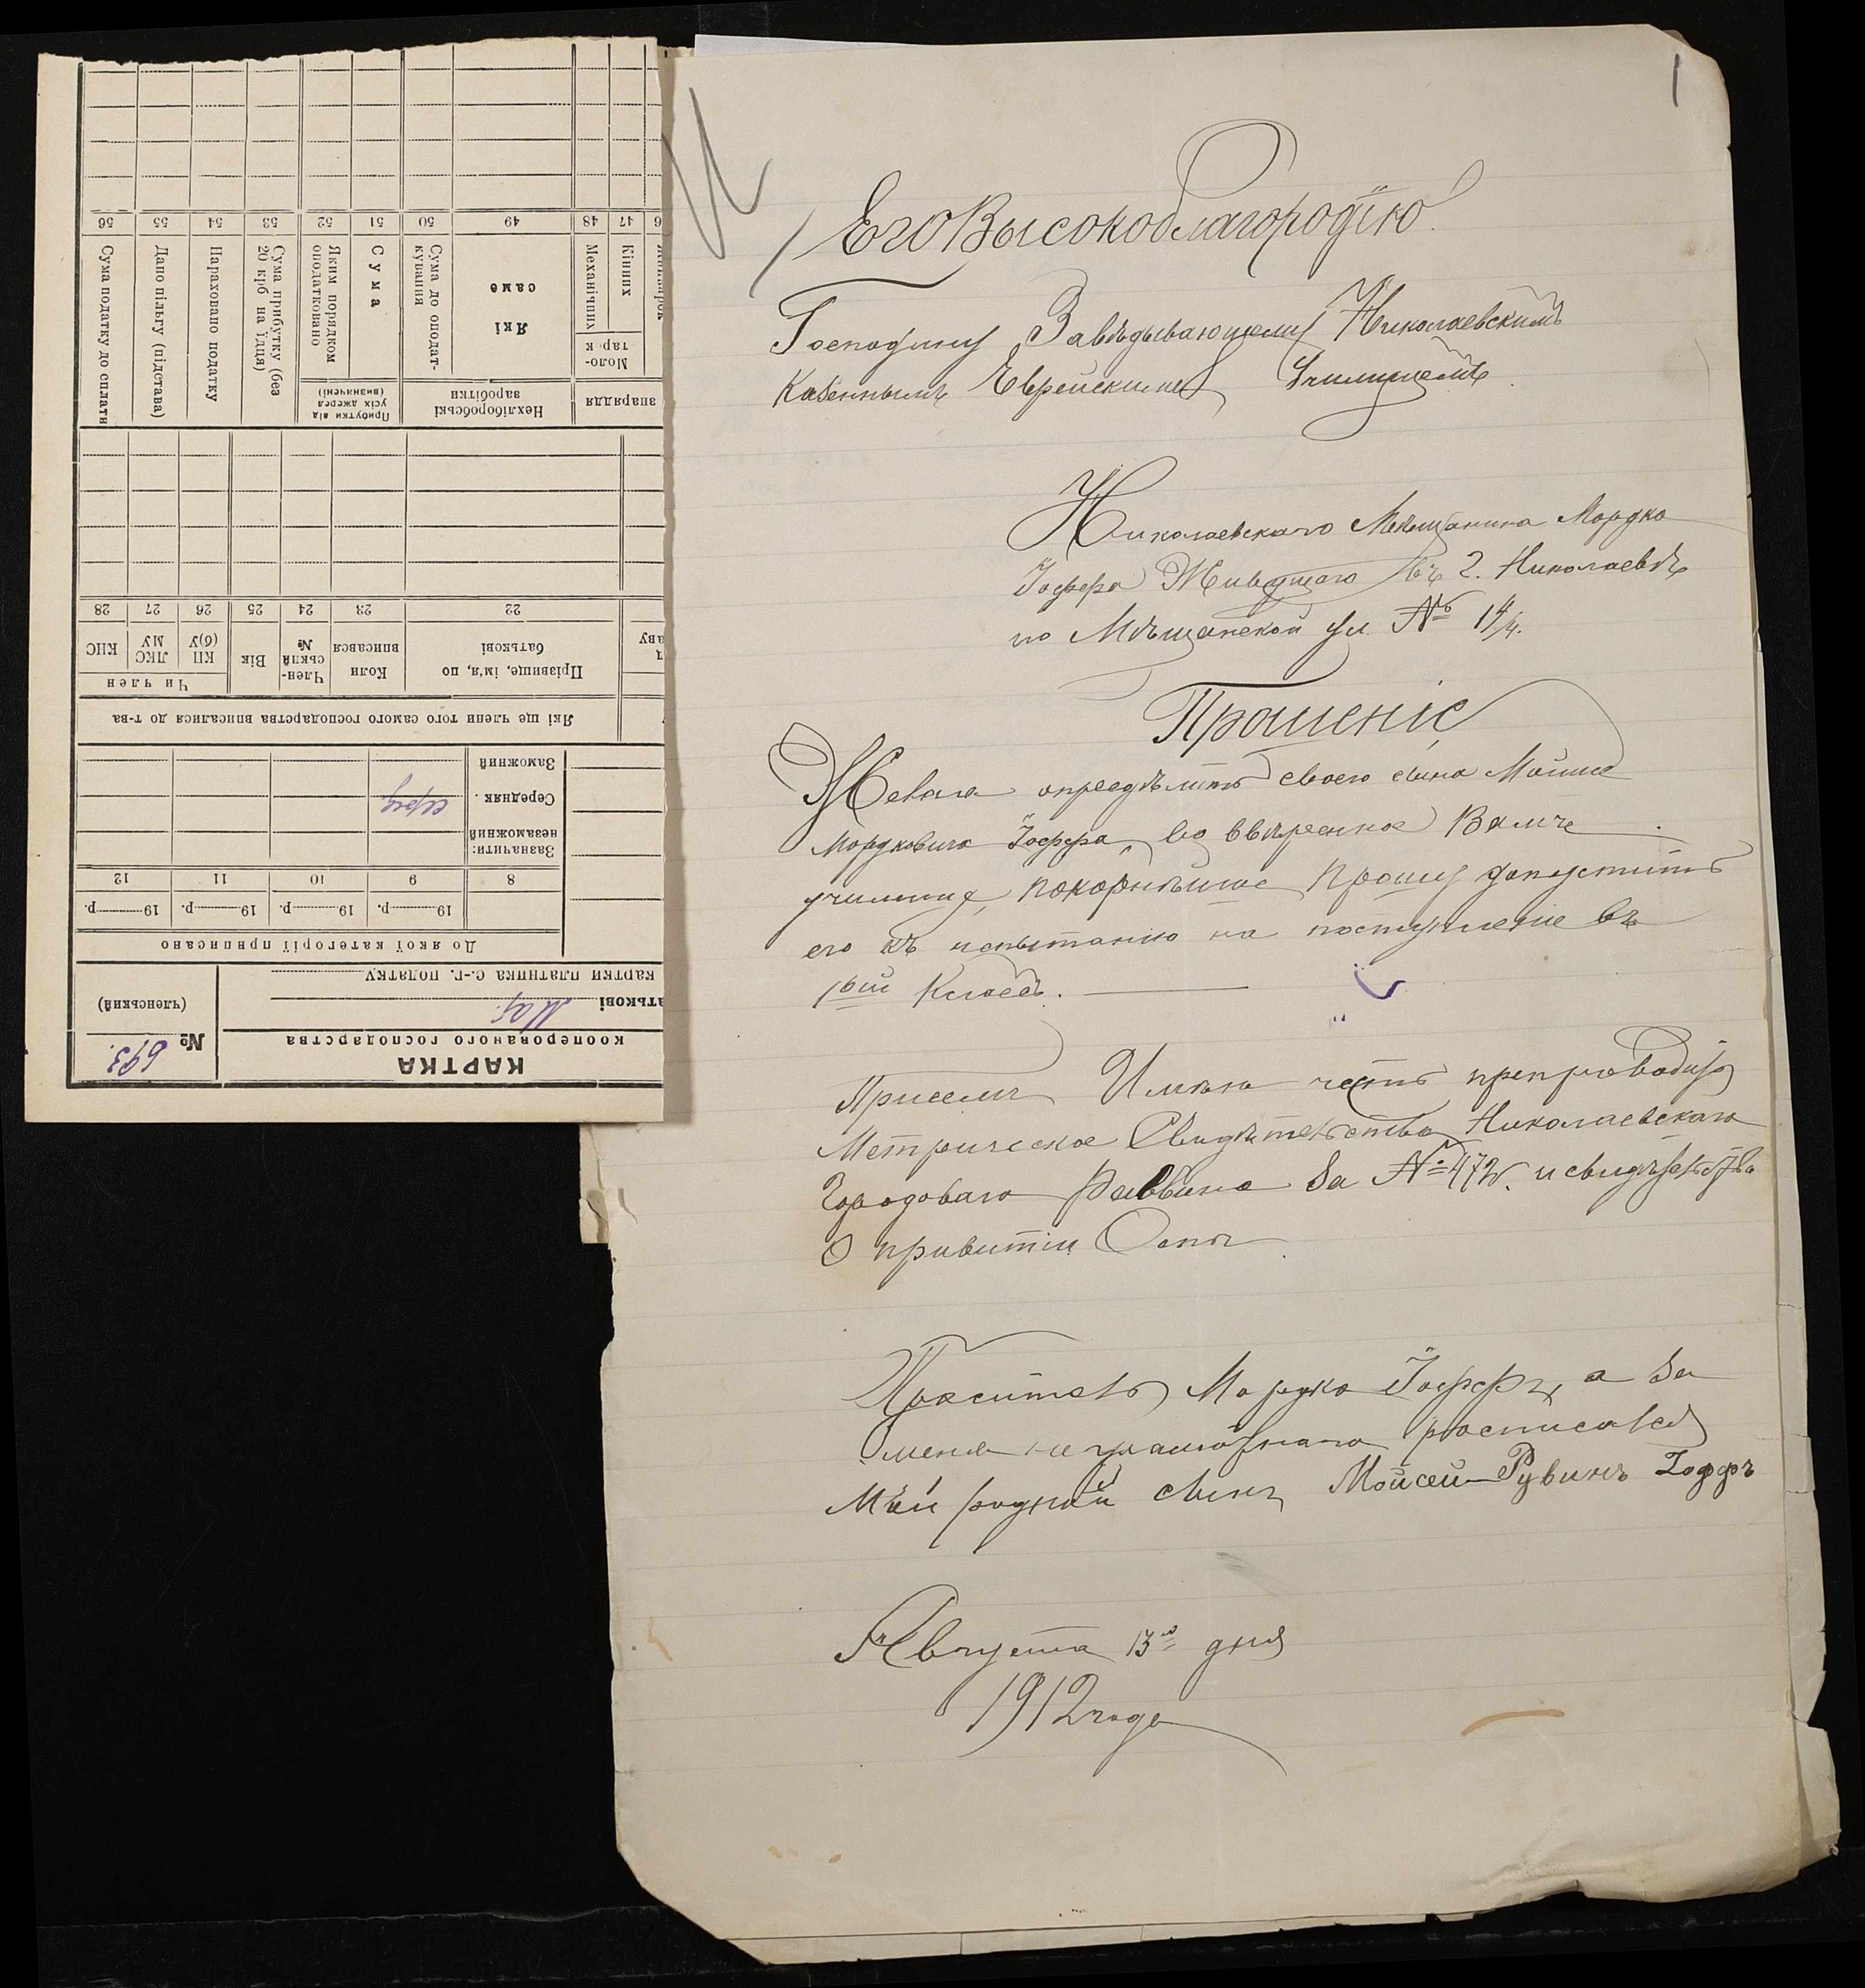 1
ЕгоВысокоблагородію
Господину Завѣдывающему Николаевскимъ
Казеннымъ Еврейскимъ Училищемъ
Николаевскаго Мѣщанина Мордко
Іоффа Живущаго въ г. Николаевѣ
по Мѣщанской ул. №
Прошеніе
Желая опредѣлить своего сына
Мордковича Іоффа, во ввѣренное Вамъ
училище, покорнѣйше прошу допустить
его къ испытанію на поступленіе въ
1ый Классъ.
Присемъ Имѣю честь препроводить
Метрическое Свидѣтельство Николаевскаго
Городоваго Раввина за № и свидѣтельство
О привитіи Оспы
Проситель Мордко Іоффъ, а за
меня неграмотнаго росписался
Мой родный сынъ Мойсей-Рувинъ Іоффъ
Августа 13го дня
1912 года
КАРТКА
кооперованого господарства
№ 693.
(членський)
атькові Мар.
картки платника с.-г. податку
До якої категорії приписано
19 р. 19 р. 19 р. 19 р.
8 9 10 11 12
Зазначити:
незаможний
Середняк серед
Заможний
Які ще члени того самого господарства вписалися до т-ва
Прізвище, ім'я, по
батькові
Коли
вписався
Член-
ський
№
Вік
Чи член
КП
(б)У
ЛКС
МУ
КНС
22 23 24 25 26 27 28
знаряддя
Моло-
тарок
Кінних
Механічних
Нехліборобські
заробітки
Які
саме
Сума до оподат-
кування
Прибутки від
усіх джерел
(визначені)
Сума
Яким порядком
оподатковано
Сума прибутку (без
20 крб на їдця)
Нараховано податку
Дано пільгу (підстава)
Сума податку до сплати
47 48 49 50 51 52 53 54 55 56